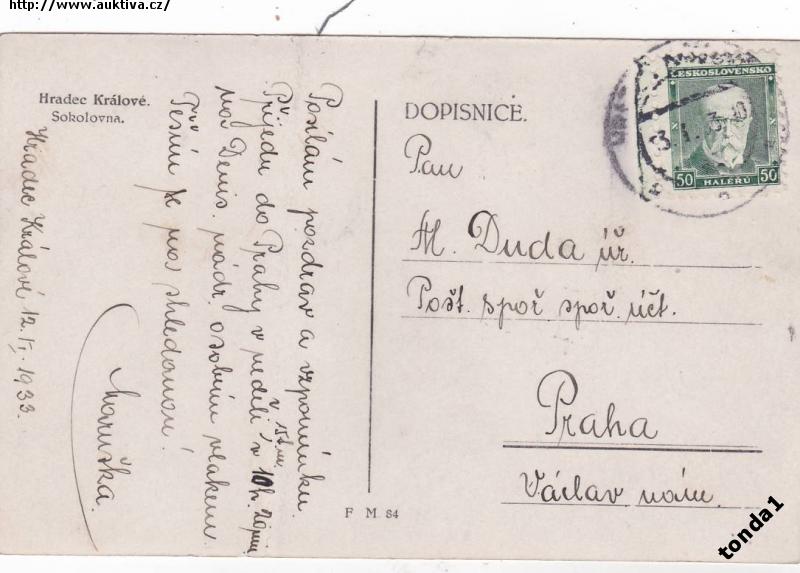 http://www.auktiva.cz/
Hradec Králové.
Sokolovna.
Hradec Králové 12./I. 1933.
Posílám pozdrav a vzpomínku.
Přijedu do Prahy v neděli v 10h. 20min
v 15t.m.
na Denis. nádr. osobním vlakem
Těším se na shledanou!
Maruška.
F M. 84
DOPISNICE.
ČESKOSLOVENSKO
50 HALÉŘŮ 50
Pan
Al. Duda úř.
Pošt. spoř spoř. účt.
Praha
Václav nám.
tonda1